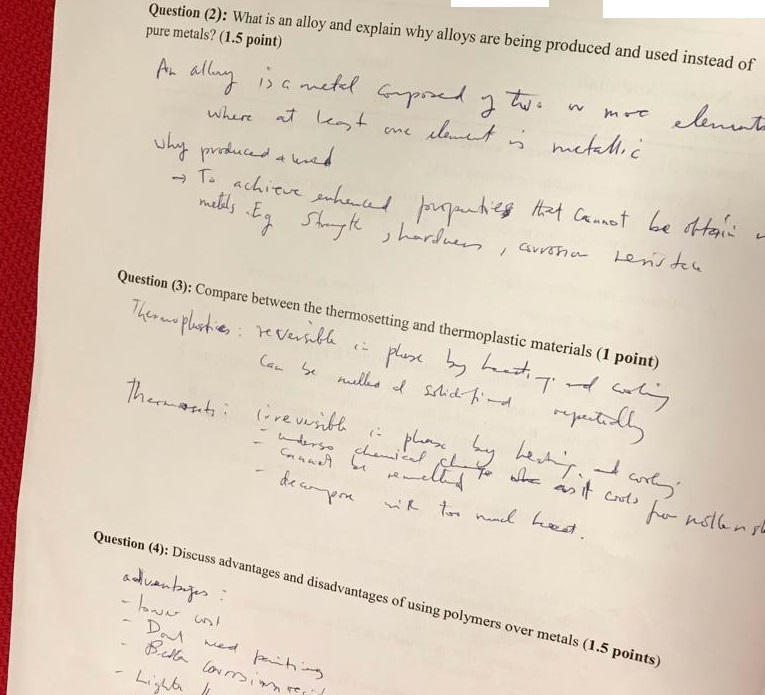 Question (2): What is an alloy and explain why alloys are being produced and used instead of
pure metals? (1.5 point)
An alloy is a metal composed of two or more elements
where at least one element is metallic
why produced & used
→ To achieve enhanced properties that cannot be obtain
metals. Eg strength, hardness, corrosion
Question (3): Compare between the thermosetting and thermoplastic materials (1 point)
Thermoplastics: reversible in phase by heating and cooling
Can be melted & solidified repeatedly
Thermosets: irreversible in phase by heating and cooling
- undergo chemical change as it cools from molten
- cannot be remelted
- decompose with too much heat.
Question (4): Discuss advantages and disadvantages of using polymers over metals (1.5 points)
advantages:
- lower cost
- Dont need painting
- Better corrosion
- Lighter